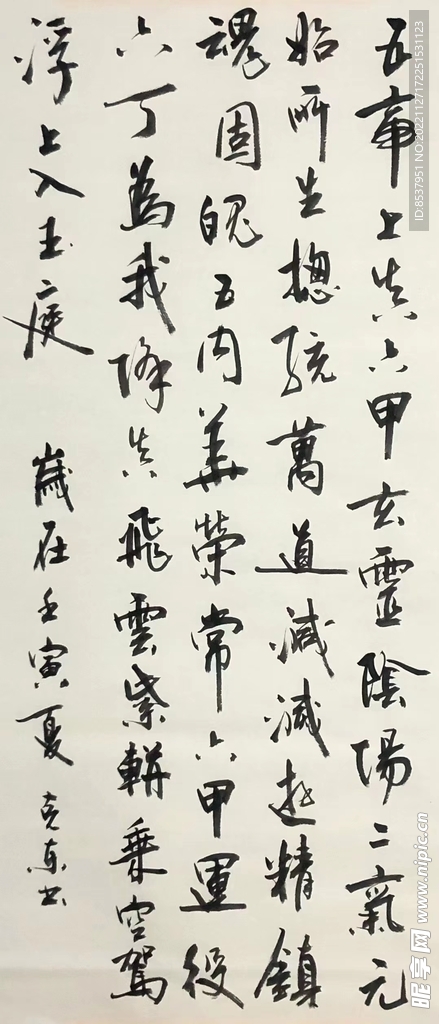 五帝上真六甲玄靈陰陽二氣元
始所生摠統萬道減滅遊精鎮
魂固魄五内華榮常六甲運役
六丁為我降真飛雲紫軿乘空駕
浮上入玉庭 歲在壬寅夏 克东书
ID:8537951 NO:20221127172251531123
昵享网 www.nipic.cn